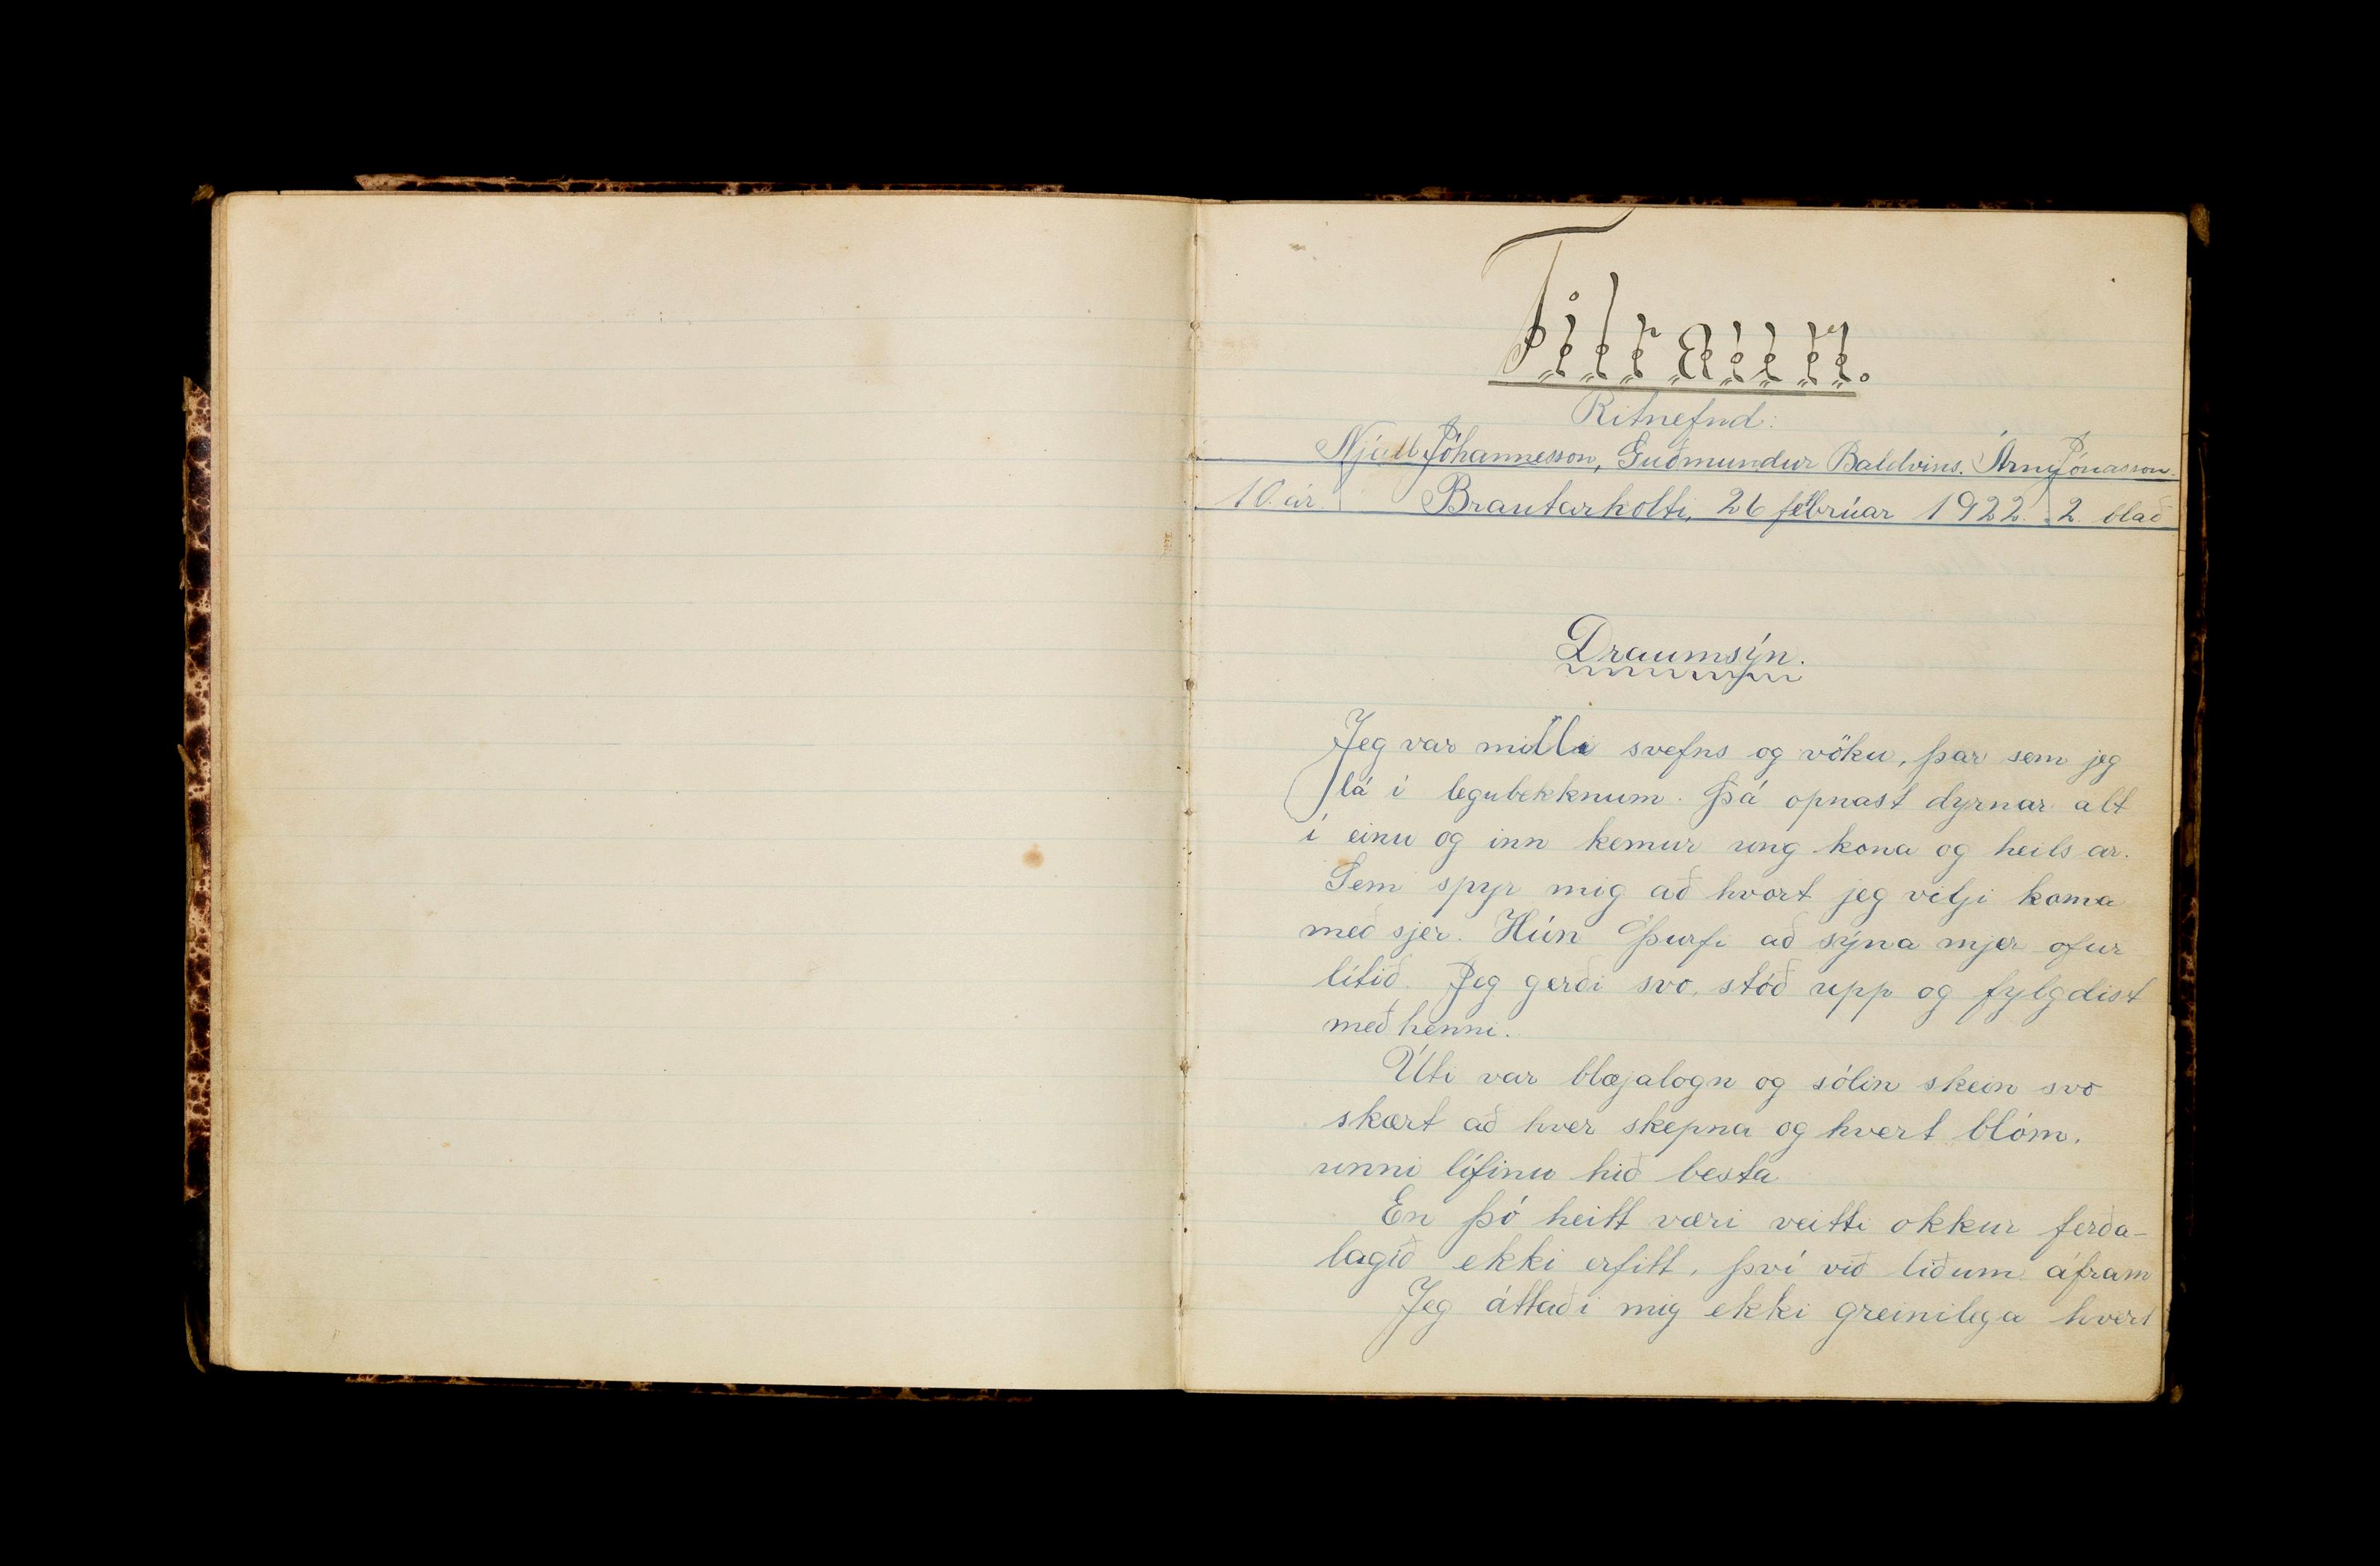 Tilraun.
Ritnefnd:
Njáll Jóhannesson, Guðmundur Baldvins. Árni Jónasson.
10. ár. Brautarholti, 26 februar 1922. 2. blað
Draumsýn.
Jeg var milli svefns og vöku, þar sem jeg
lá í legubekknum. Þá opnast dyrnar alt
í einu og inn kemur ung kona og heilsar.
Sem spyr mig að hvort jeg vilji koma
með sjer. Hún þurfi að sýna mjer ofur
lítið. Jeg gerði svo, stóð upp og fylgdist
með henni.
Úti var blæjalogn og sólin skein svo
skært að hver skepna og hvert blóm,
unni lífinu hið besta
En þó heitt væri veitti okkur ferða-
lagið ekki erfitt, því við liðum áfram
Jeg áttaði mig ekki greinilega hvert